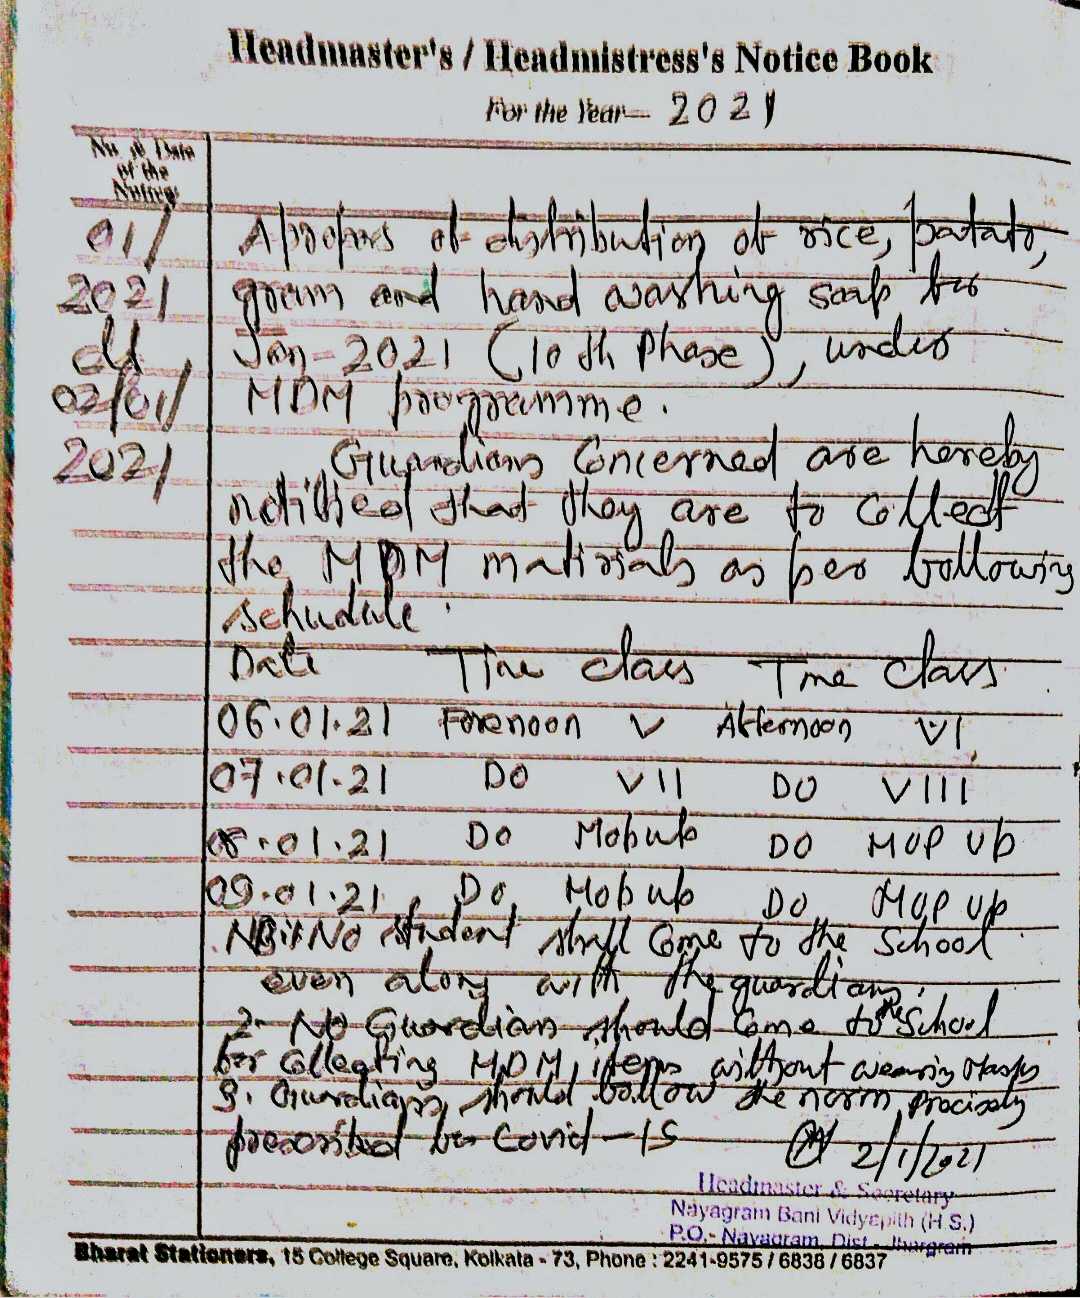 Headmaster's / Headmistress's Notice Book
For the Year— 2021
No. & Date
of the
Notice
01/
2021
dt
02/01/
2021
Apropos of distribution of rice, patato,
gram and hand washing soap for
Jan-2021 (10th Phase), under
MDM programme.
Guardians Concerned are hereby
notified that they are to collect
the MDM matirials as per following
schudule.
Date Time class Time class
06.01.21 Forenoon V Afternoon VI
07.01.21 DO VII DO VIII
08.01.21 DO Mop up DO MOP UP
09.01.21 DO Mop up DO MOP UP
NB:1. No student shall Come to the School
even along with the guardians.
2. NO Guardian should Come to the School
for Collecting MDM items without wearing Masks
3. Guardians should follow the norm precisely
prescribed for Covid-19
2/1/2021
Headmaster & Secretary
Nayagram Bani Vidyapith (H.S.)
P.O.- Nayagram, Dist.- Jhargram
Bharat Stationers, 15 College Square, Kolkata - 73, Phone : 2241-9575 / 6838 / 6837